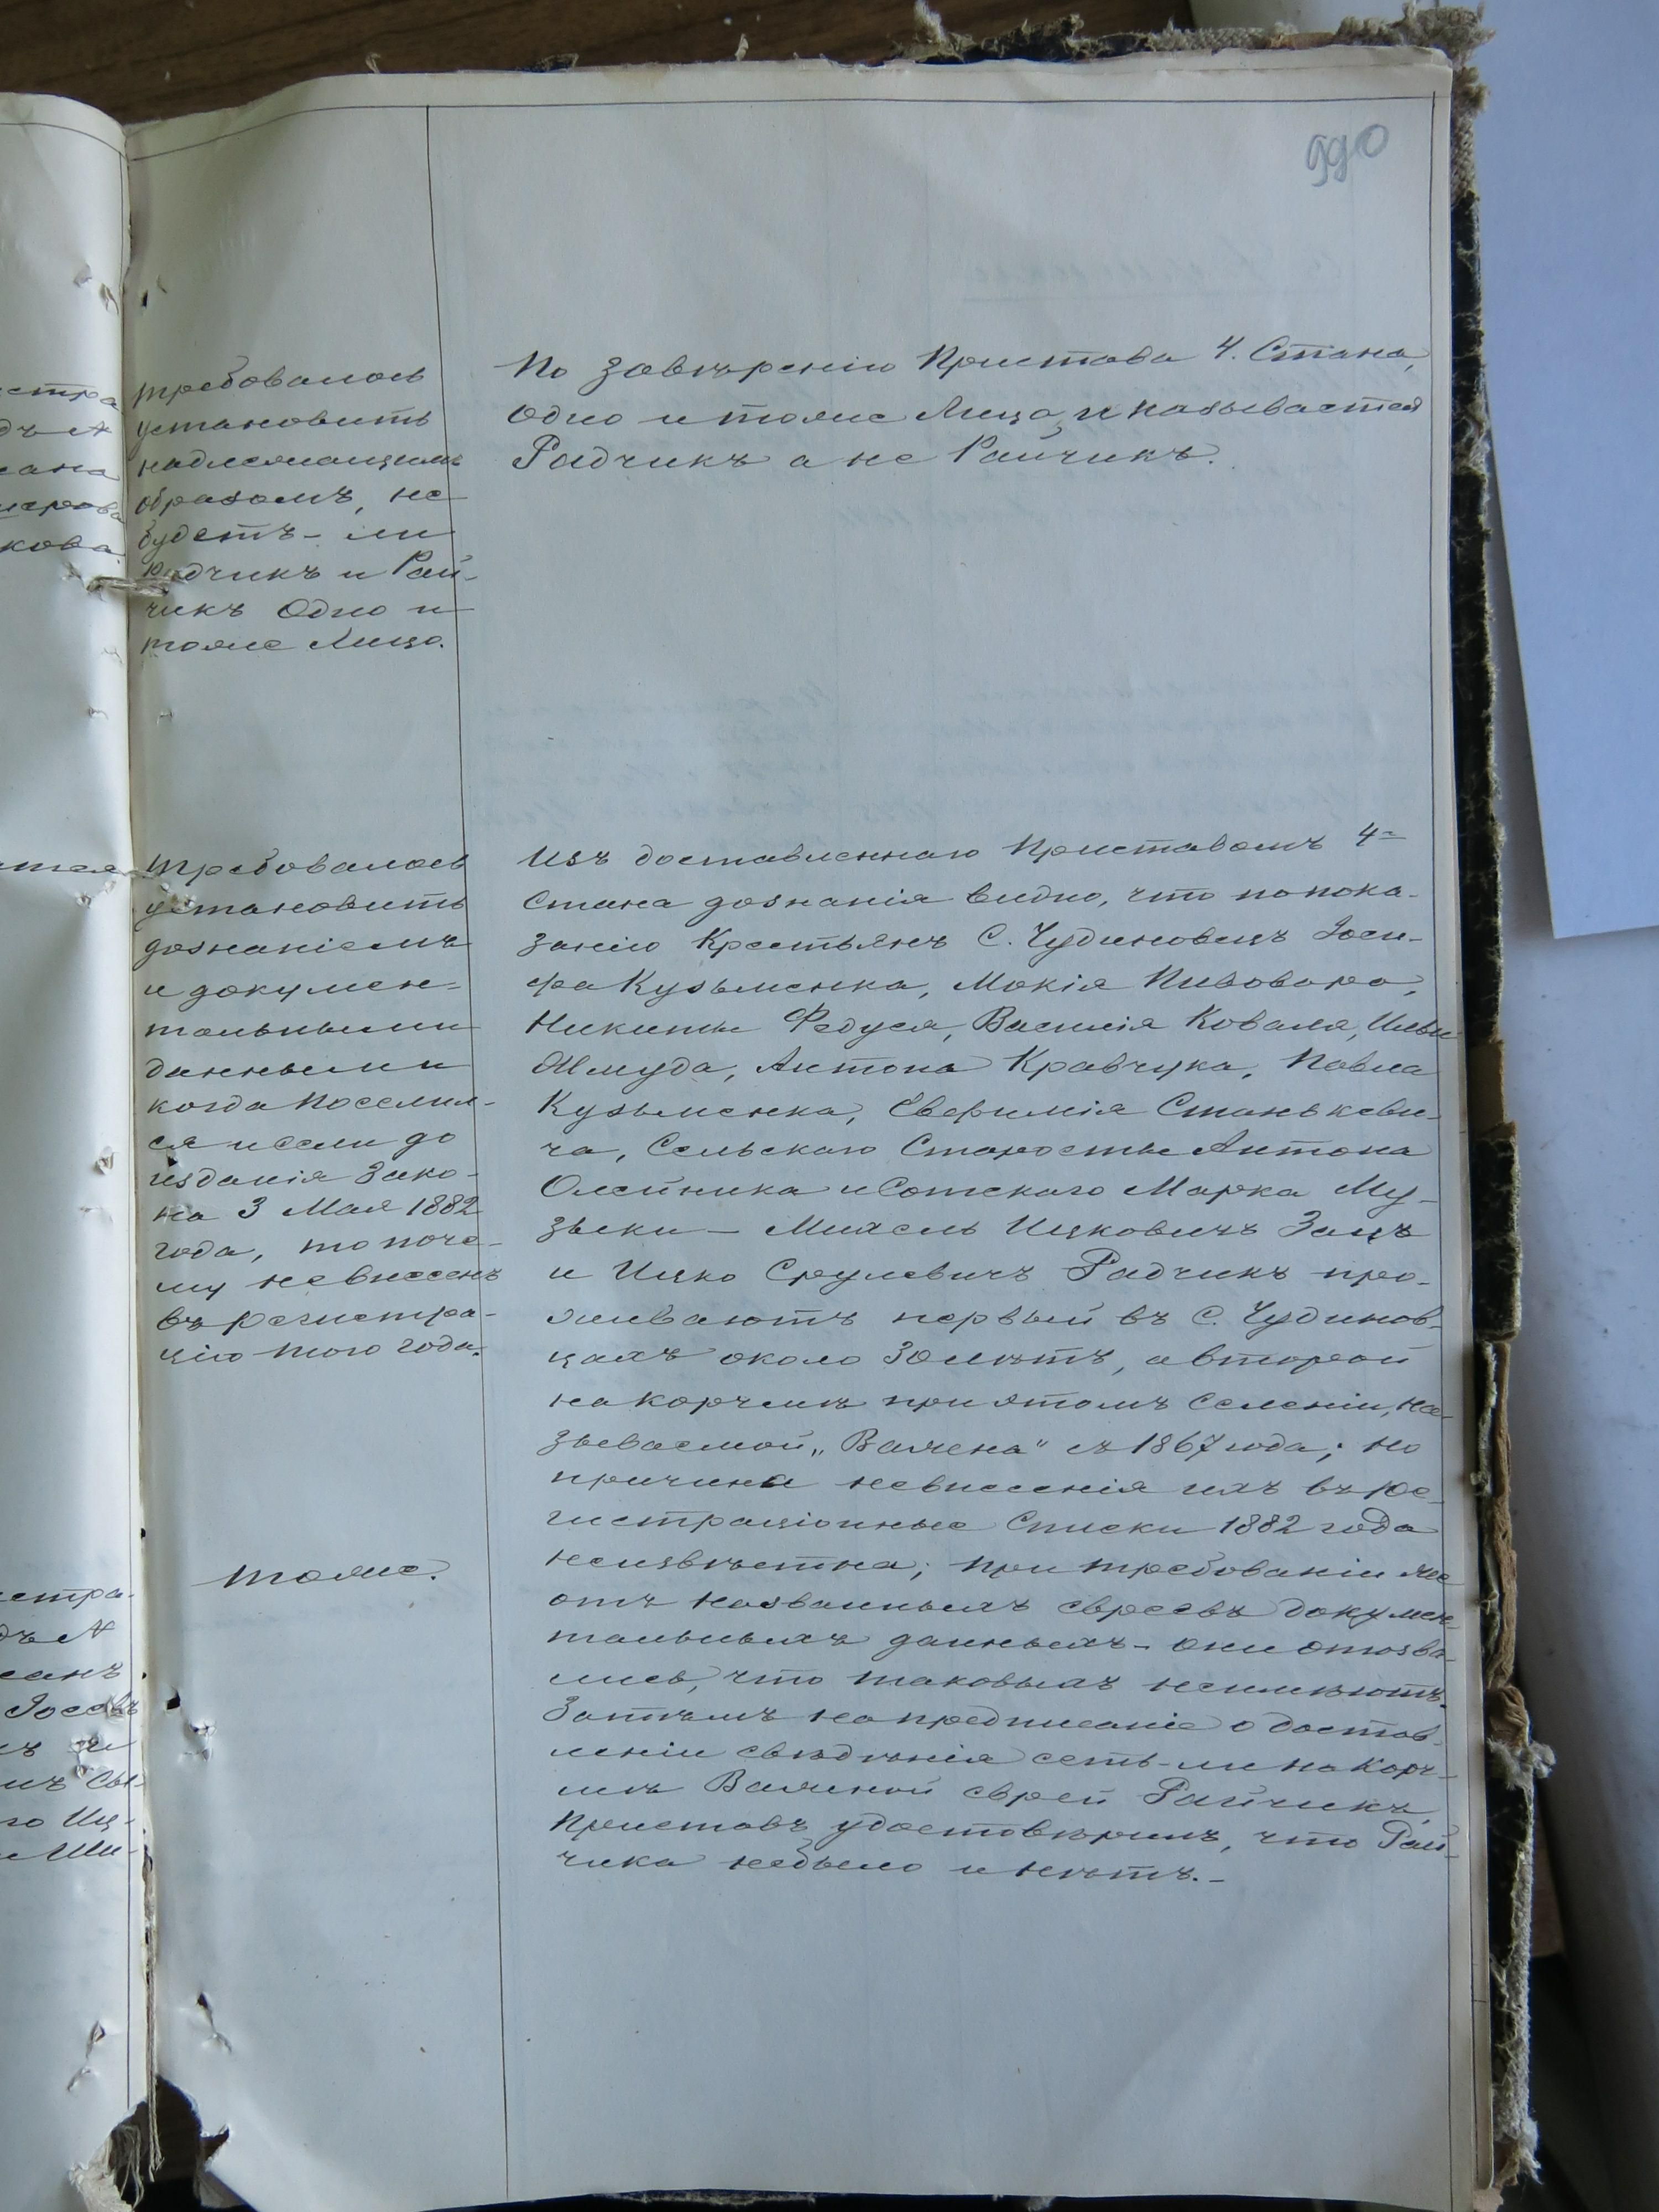 990
требовалось
установить
надлежащимъ
образомъ, не
будетъ-ли
Радчикъ и Рай-
чикъ Одно и
тоже Лицо.
По завѣренію Пристава 4. Стана,
одно и тоже Лицо, и называется
Радчикъ а не Райчикъ.
Требовалось
установить
дознаніемъ
и докумен-
тальными
данными
когда поселил-
ся и если до
изданія Зако-
на 3 Мая 1882
года, то поче-
му невнесенъ
въ регистра-
цію того года.
Изъ доставленнаго Приставомъ 4-
Стана дознанія видно, что по пока-
занію Крестьянъ С. Чудиновецъ Іоси-
фа Кузьменка, Мокія Пивовара,
Никиты Федуся, Василія Коваля, Ильи
Жмуда, Антона Кравчука, Павла
Кузьменка, Евфимія Станькеви-
ча, Сельскаго Старосты Антона
Олейника и Сотскаго Марка Му-
зыки – Михель Ицковичъ Зацъ
и Ицко Срулевичъ Радчикъ про-
живаютъ первый въ С. Чудинов-
цахъ около 30 лѣтъ, а второй
на корчмѣ при этомъ селеніи, на-
зываемой „Валжена" съ 1867 года; но
причина невнесенія ихъ въ Ре-
гистраціонные Списки 1882 года
неизвѣстна; при требованіи же
отъ названныхъ евреевъ докумен-
тальныхъ данныхъ – они отозва-
лись, что таковыхъ неимѣютъ.
Затѣмъ на предписаніе о достав-
леніи свѣдѣнія есть-ли на Корч-
мѣ еврей Райчикъ,
Приставъ удостовѣрилъ, что Рай-
чика небыло и нѣтъ.-
тоже.